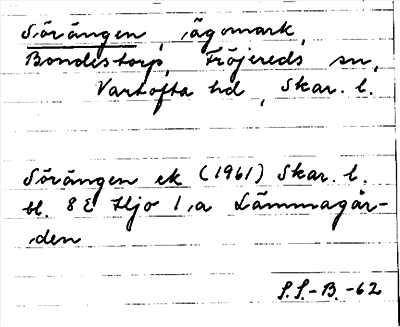 Sörängen, ägomark,
Bondestorp, Fröjereds sn,
Vartofta hd, Skar. l.
Sörängen ek (1961) Skar. l.
bl. 8 E Hjo 1,a Lämmagår-
den
S.S.-B.-62